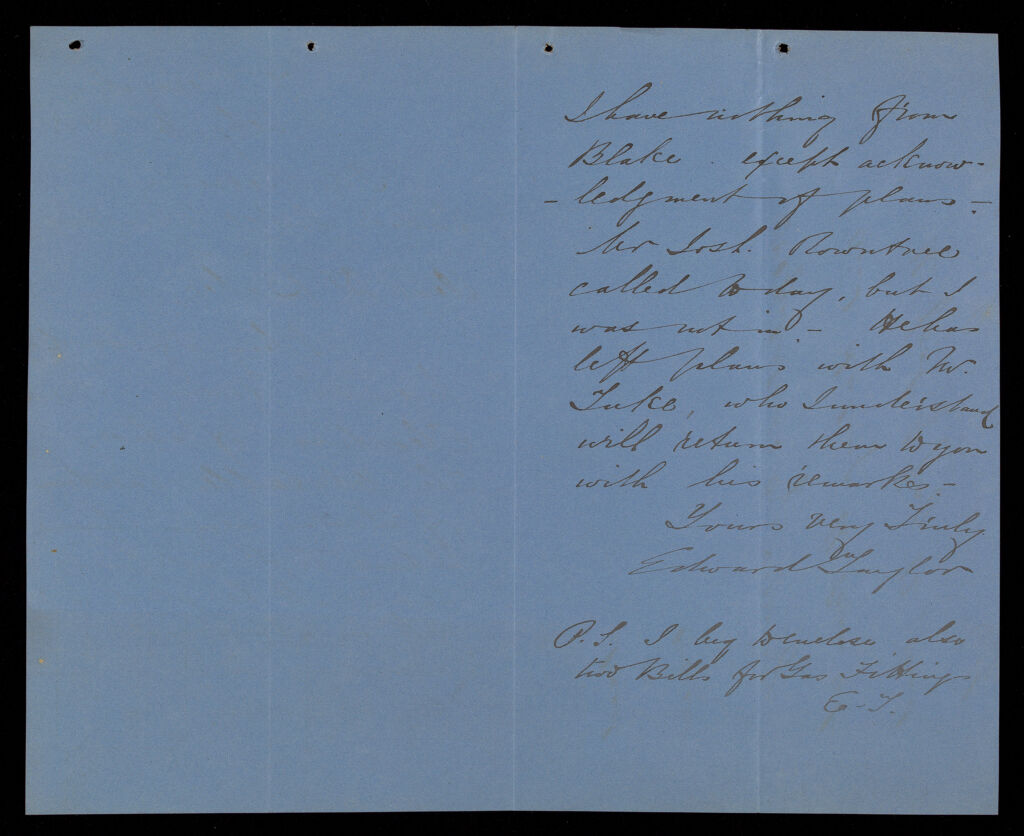 I have nothing from
Blake. except acknow-
- ledgment of plans -
Mr Josh. Rowntree
called to day, but I
was not in - He has
left plans with Mr.
Tuke, who I understand
will return them to you
with his remarks -
Yours very Truly
Edward Taylor
P.S. I beg to enclose also
two Bills for Gas Fittings
E. T.